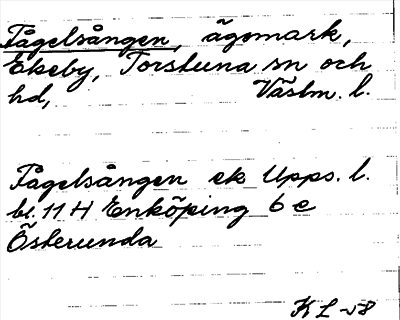 Fågelsången, ägomark,
Ekeby, Torstuna sn och
hd, Västm. l.
Fågelsången ek Upps. l.
bl. 11 H Enköping 6 e
Österunda
KL -58